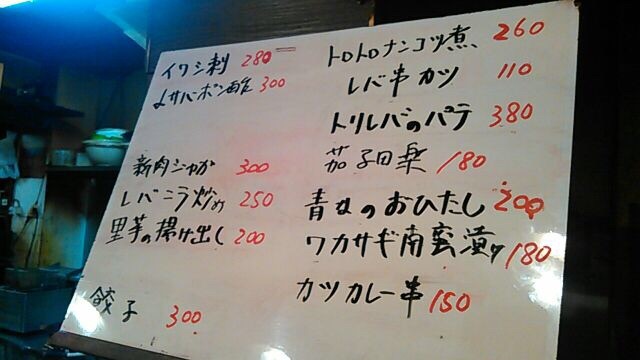 イワシ刺 280
〆サバポン酢 300
新肉ジャが 300
レバニラ炒め 250
里芋の揚け出し 200
餃子 300
トロトロナンコツ煮 260
レバ串カツ 110
トリレバのパテ 380
茄子田楽 180
青菜のおひたし 200
ワカサギ南蛮漬け 180
カツカレー串 150